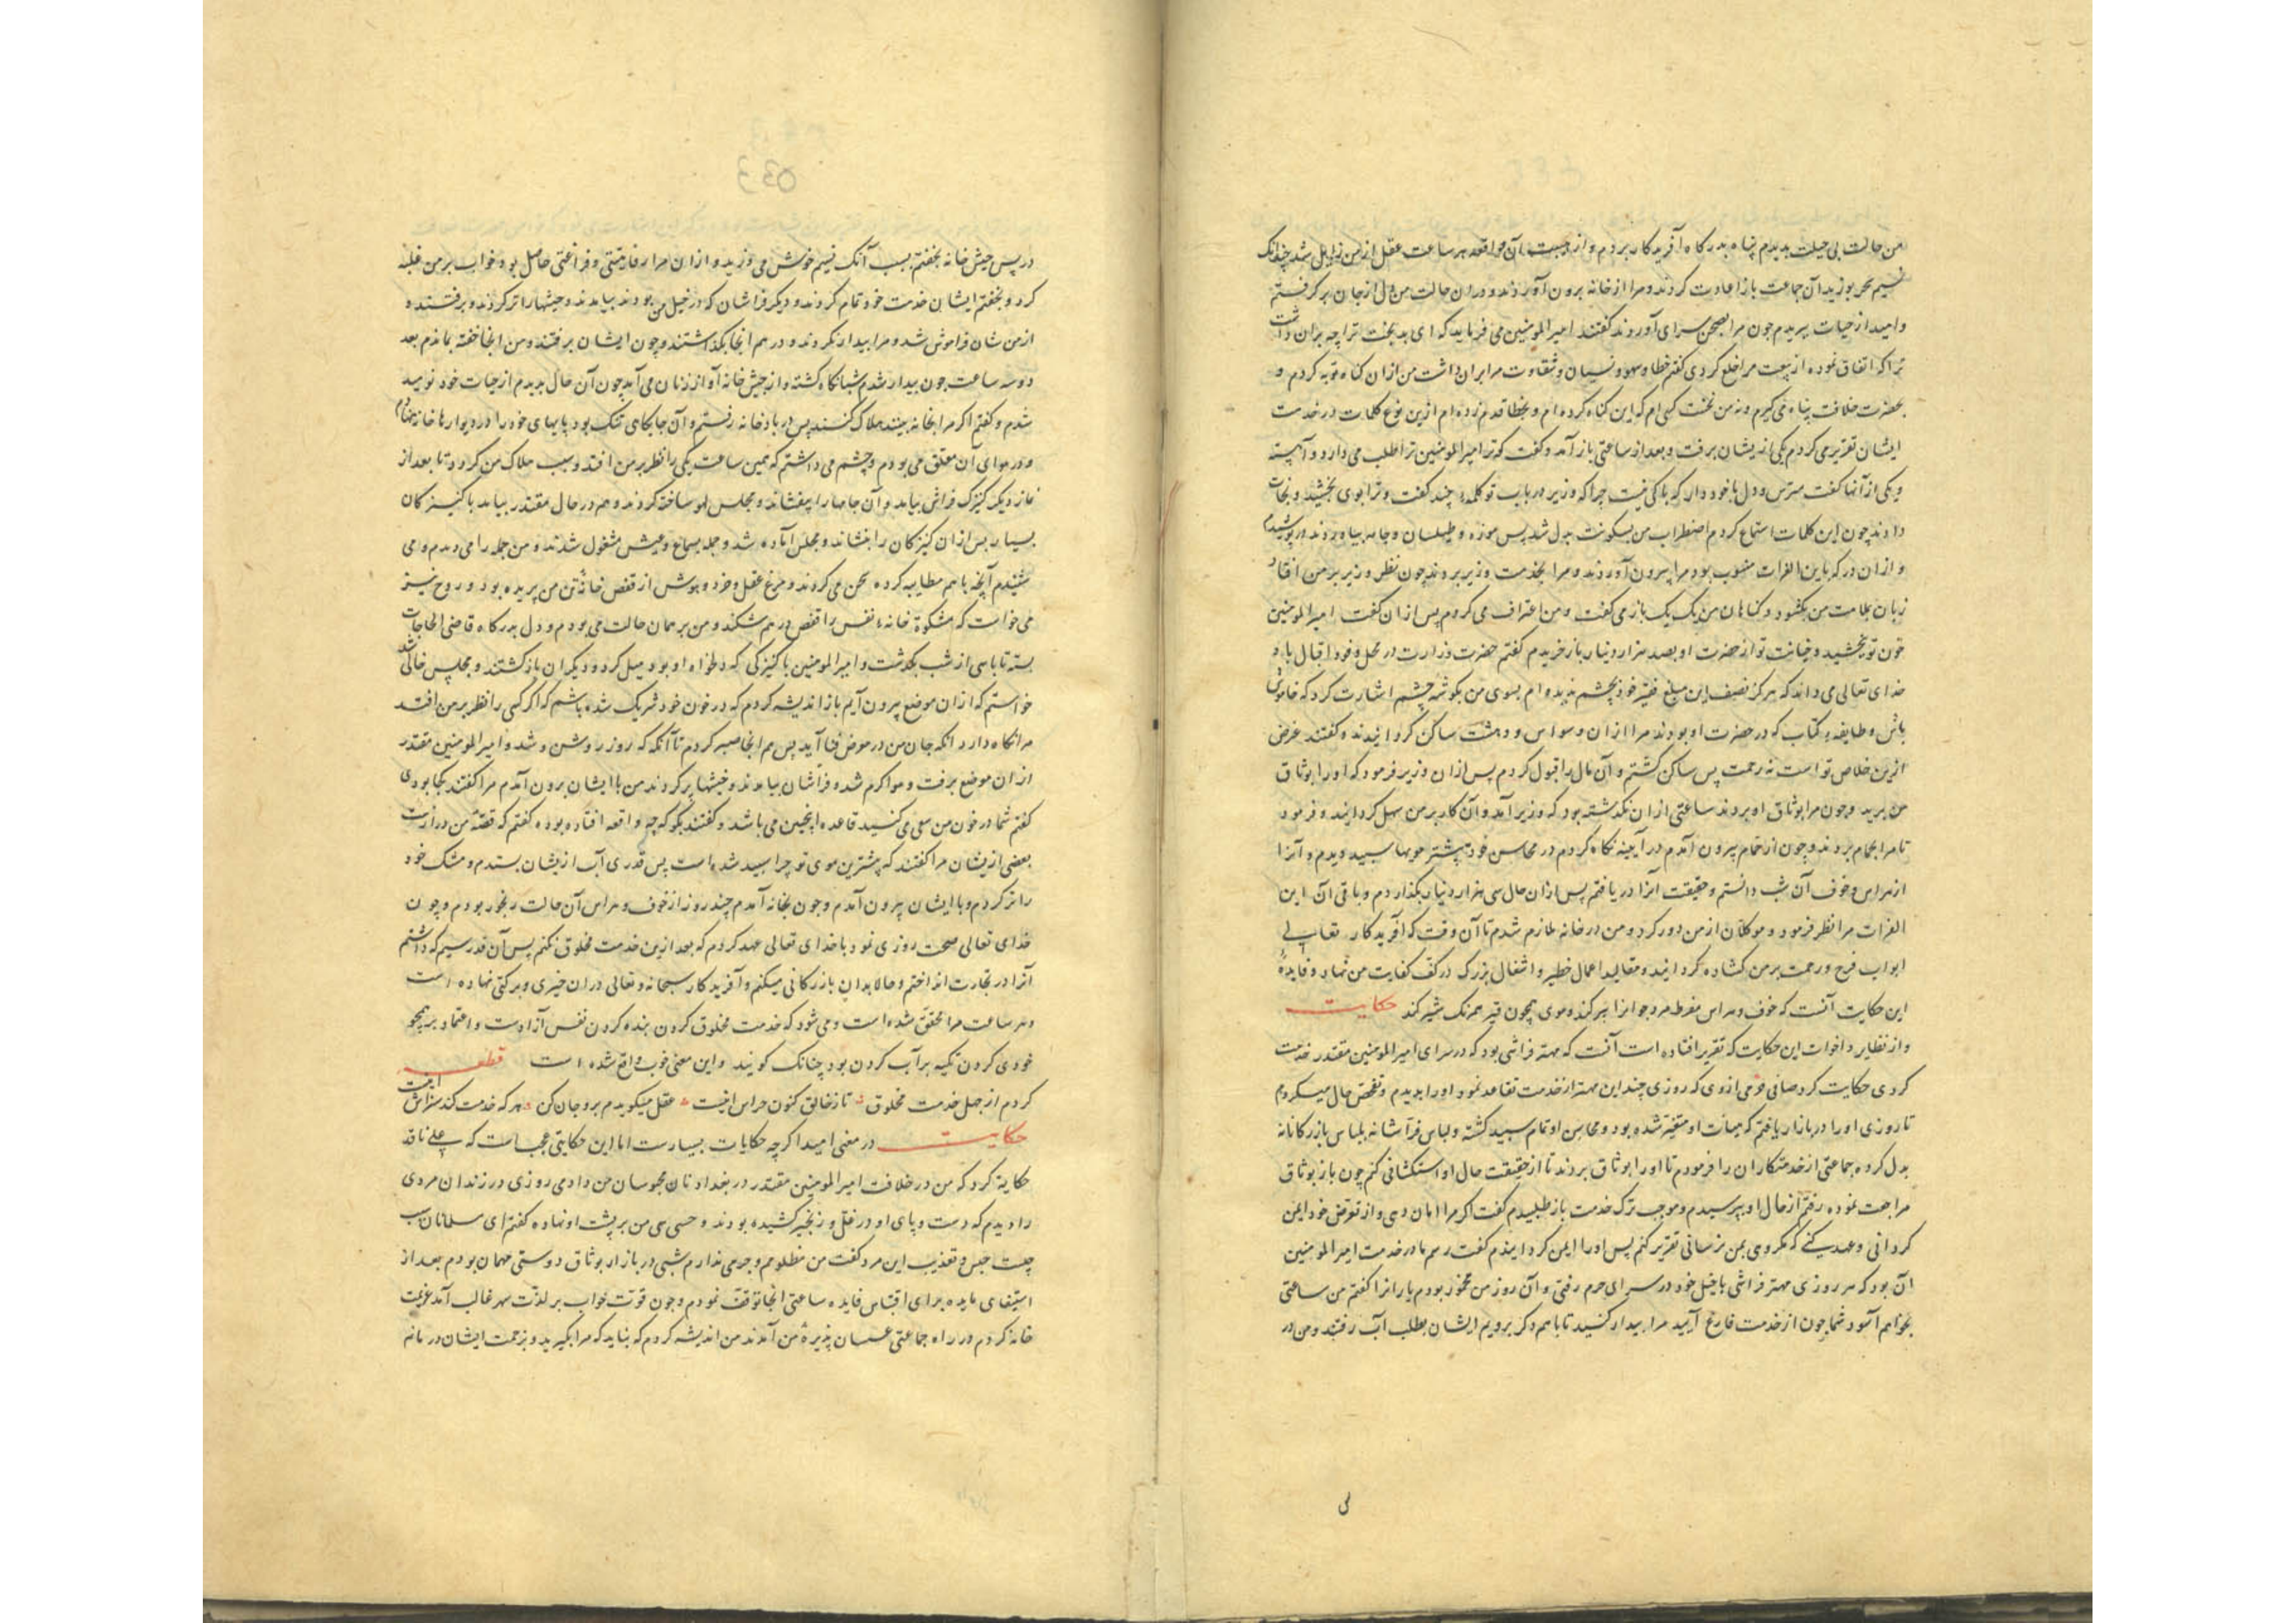 من حالت بی حیلت بدیدم پناه بدرکاه آفریدکار بردم و از هیبت آن واقعه هر ساعت عقل از من زایل شد چندانک
نسیم سحر بوزید آن جماعت باز اعادت کردند و مرا از خانه برون آوردند و در ان حالت من دل از جان برکرفتم
و امید از حیات بریدم چون مرا بصحن سرای آوردند کفتند امیرالمومنین می فرماید که ای بدبخت ترا چه بران داشت
ترا که اتفاق نموده از بیعت مرا خلع کردی کفتم خطا و سهو و نسیان و شقاوت مرا بران داشت من از ان کناه توبه کردم و
بحضرت خلافت پناه می کیرم و نه من نخست کسی ام که این کناه کرده ام و بخطا قدم زده ام ازین نوع کلمات در خدمت
ایشان تقریر می کردم یکی از یشان برفت و بعد از ساعتی باز آمد و کفت که ترا امیرالمومنین ترا طلب می دارد و آهسته
و یکی از آنها کفت مترس و دل با خود دار که باکی نیست چرا که وزیر در باب تو کلمهٔ چند کفت و ترا بوی بخشید و نجات
دادند چون این کلمات استماع کردم اضطراب من بسکونت بدل شد پس موزه و طیلسان و جامه بیاوردند در پوشیدم
و از ان در که بابن الفرات منسوب بود مرا بیرون آوردند و مرا بخدمت وزیر بردند چون نظر وزیر بر من افتاد
زبان بملامت من بکشود و کناهان من یک یک باز می کفت و من اعتراف می کردم پس از ان کفت امیرالمومنین
خون تو بخشید و خیانت تو از حضرت او بصد هزار دینار باز خریدم کفتم حضرت وزارت در محل و خود اقبال باد و
خدای تعالی می داند که هرکز نصف این مبلغ جمع خود بچشم ندیده ام بسوی من بکوشه چشم اشارت کرد که خاموش
باش و طایفهٔ کتاب که در حضرت او بودند مرا از ان وسواس و دهشت ساکن کردانیدند و کفتند غرض
ازین خلاص تو است نه زحمت پس ساکن کشتم و آن مال را قبول کردم پس از ان وزیر فرمود که او را بوثاق
من برید و چون مرا بوثاق او بردند ساعتی از ان نکذشته بود که وزیر آمد و آن کار بر من سهل کردانید و فرمود
تا مرا بحمام بردند و چون از حمام بیرون آمدم در آیینه نکاه کردم در محاسن خود بیشتر مویها سپید دیدم و آنرا
از هراس و خوف آن شب دانستم و حقیقت آنرا دریافتم پس از ان مال سی هزار دینار بکذاردم و باقی آن ابن
الفرات مرا نظر فرمود و موکلان از من دور کرد و من در خانه ملازم شدم تا آن وقت که آفریدکار تعالی
ابواب فرج و رحمت بر من کشاده کردانید و مقالید اعمال خطیر و اشغال بزرک در کف کفایت من نهاد و فایدهٔ
این حکایت آنست که خوف و هراس مفرط مرد جوانرا پیر کند و موی همچون قیر همرنک شیر کند حکایت
و از نظایر و اخوات این حکایت که تقریر افتاده است آنست که مهتر فراشی بود که در سرای امیرالمومنین مقتدر خدمت
کردی حکایت کرد صافی حرمی از وی که روزی چند این مهتر از خدمت تقاعد نمود او را ندیدم و تفحص حال میکردم
تا روزی او را در بازار یافتم که هیات او متغیر شده بود و محاسن او تمام سپید کشته و لباس فراشانه بلباس بازرکانانه
بدل کرده جماعتی از خدمتکاران را فرمودم تا او را بوثاق بردند تا از حقیقت حال او استکشافی کنم چون باز بوثاق
مراجعت نموده رفتم از حال او بپرسیدم و موجب ترک خدمت باز طلبیدم کفت اکر مرا امان دهی و از تعرض خود ایمن
کردانی و عهد کنی که مکروهی بمن نرسانی تقریر کنم پس او را ایمن کردانیدم کفت رسم ما در خدمت امیرالمومنین
آن بود که هر روزی مهتر فراشی با خیل خود در سرای حرم رفتی و آن روز من مخمور بودم یارانرا کفتم من ساعتی
بخواهم آسود شما چون از خدمت فارغ آیید مرا بیدار کنید تا با هم دکر برویم ایشان بطلب آب رفتند و من در
لی
در پس خیش خانه بخفتم بسبب آنک نسیم خوش می وزید و از ان مرا رفاهیتی و فراغتی حاصل بود خواب بر من غلبه
کرد و بخفتم ایشان خدمت خود تمام کردند و دیکر فراشان که در خیل من بودند بیامدند و خیشها را تر کردند و برفتند و
از من شان فراموش شد و مرا بیدار نکردند و در هم انجا بکذاشتند و چون ایشان برفتند و من انجا خفته بماندم بعد
دو سه ساعت چون بیدار شدم شبانکاه کشته و از خیش خانه آواز زنان می آید چون آن حال بدیدم از حیات خود نومید
شدم و کفتم اکر مرا انجا نه بینند هلاک کنند پس در بادخانه رفتم و آن جایکاهی تنک بود پایهای خود را در دیوارها خانه نهادم
و در هوای آن معلق می بودم و چشم می داشتم که همین ساعت یکی را نظر بر من افتد و سبب هلاک من کردد تا بعد از
نماز دیکر کنیزک فراش بیامد و آن جامها را بیفشاند و مجلس لهو ساخته کردند و هم در حال مقتدر بیامد با کنیزکان
بسیار پس از ان کنیزکان را بنشاند و مجلس آماده شد و جمله بسماع و عیش مشغول شدند و من جمله را می دیدم و می
شنیدم آنچه با هم مطایبه کرده سخن می کردند و مرغ عقل و خرد و هوش از قفص خانهٔ تن من پریده بود و روح نیز
می خواست که مشکوة خانهٔ نفس را قفص در هم شکند و من بر همان حالت می بودم و دل بدرکاه قاضی الحاجات
بسته تا پاسی از شب بکذشت و امیرالمومنین با کنیزکی که دلخواه او بود میل کرد و دیکران باز کشتند و مجلس خالی شد
خواستم که از ان موضع بیرون آیم باز اندیشه کردم که در خون خود شریک شده باشم که اکر کسی را نظر بر من افتد
مرا نکاه دارد انکه جان من در معرض فنا آید پس هم انجا صبر کردم تا آنکه که روز روشن شد و امیرالمومنین مقتدر
از ان موضع برفت و هوا کرم شد و فراشان بیامدند و خیشها پر کردند من با ایشان برون آمدم مرا کفتند کجا بودی
کفتم شما در خون من سعی می کنید قاعده اینچنین می باشد و کفتند بکو که چه واقعه افتاده بوده کفتم که قصهٔ من درازست
بعضی از یشان مرا کفتند که بیشترین موی تو چرا سپید شده است پس قدری آب از یشان بستدم و مشک خود
را تر کردم و با ایشان بیرون آمدم و چون بخانه آمدم چند روز از خوف و هراس آن حالت رنجور بودم و چون
خدای تعالی صحت روزی نمود با خدای تعالی عهد کردم که بعد ازین خدمت مخلوق نکنم پس آن قدر سیم که داشتم
آنرا در تجارت انداختم و حالا بدان بازرکانی میکنم و آفریدکار سبحانه و تعالی در ان خیری و برکتی نهاده است
و هر ساعت مرا محقق شده است و می شود که خدمت مخلوق کردن بنده کردن نفس آزادست و اعتماد بر همچو
خودی کردن تکیه بر آب کردن بود چنانک کویند و این معنی خوب واقع شده است قطعه
کردم از جهل خدمت مخلوق تا ز خالق کنون هراس اینست عقل میکویدم برو جان کن هر که خدمت کند سزاش اینست
حکایت در معنی امید اکر چه حکایات بسیارست اما این حکایتی عجبست که علی ناقد
حکایة کرد که من در خلافت امیرالمومنین مقتدر در بغداد نان محبوسان من دادمی روزی در زندان مردی
را دیدم که دست و پای او در غل و زنجیر کشیده بودند و حسی سی من بر پشت او نهاده کفتم ای مسلمانان سبب
چیست حبس و تعذیب این مرد کفت من مظلومم و جرمی ندارم شبی در بازار بوثاق دوستی مهمان بودم بعد از
استیفای مایده برای اقتباس فایده ساعتی انجا توقف نمودم و چون قوت خواب بر لذت سهر غالب آمد عزیمت
خانه کردم در راه جماعتی عسسان پذیرهٔ من آمدند من اندیشه کردم که نباید که مرا بکیرید و بزحمت ایشان در مانم